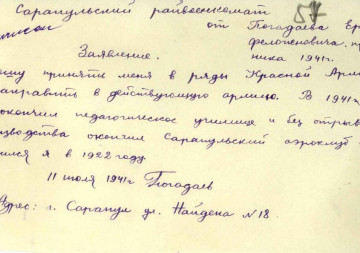 Сарапульский райвоенкомат
от Погадаева Ер
фелогеновича. пр
Заявление. ника 1941г.
шу принять меня в ряды Красной Арми
аправить в действующую армию. В 1941г
окончил педагогическое училище и без отрыв
изводства окончил Сарапульский аэроклуб
ился я в 1922 году.
11 июля 1941г Погадаев
Адрес: г. Сарапул ул. Найдена N 18.